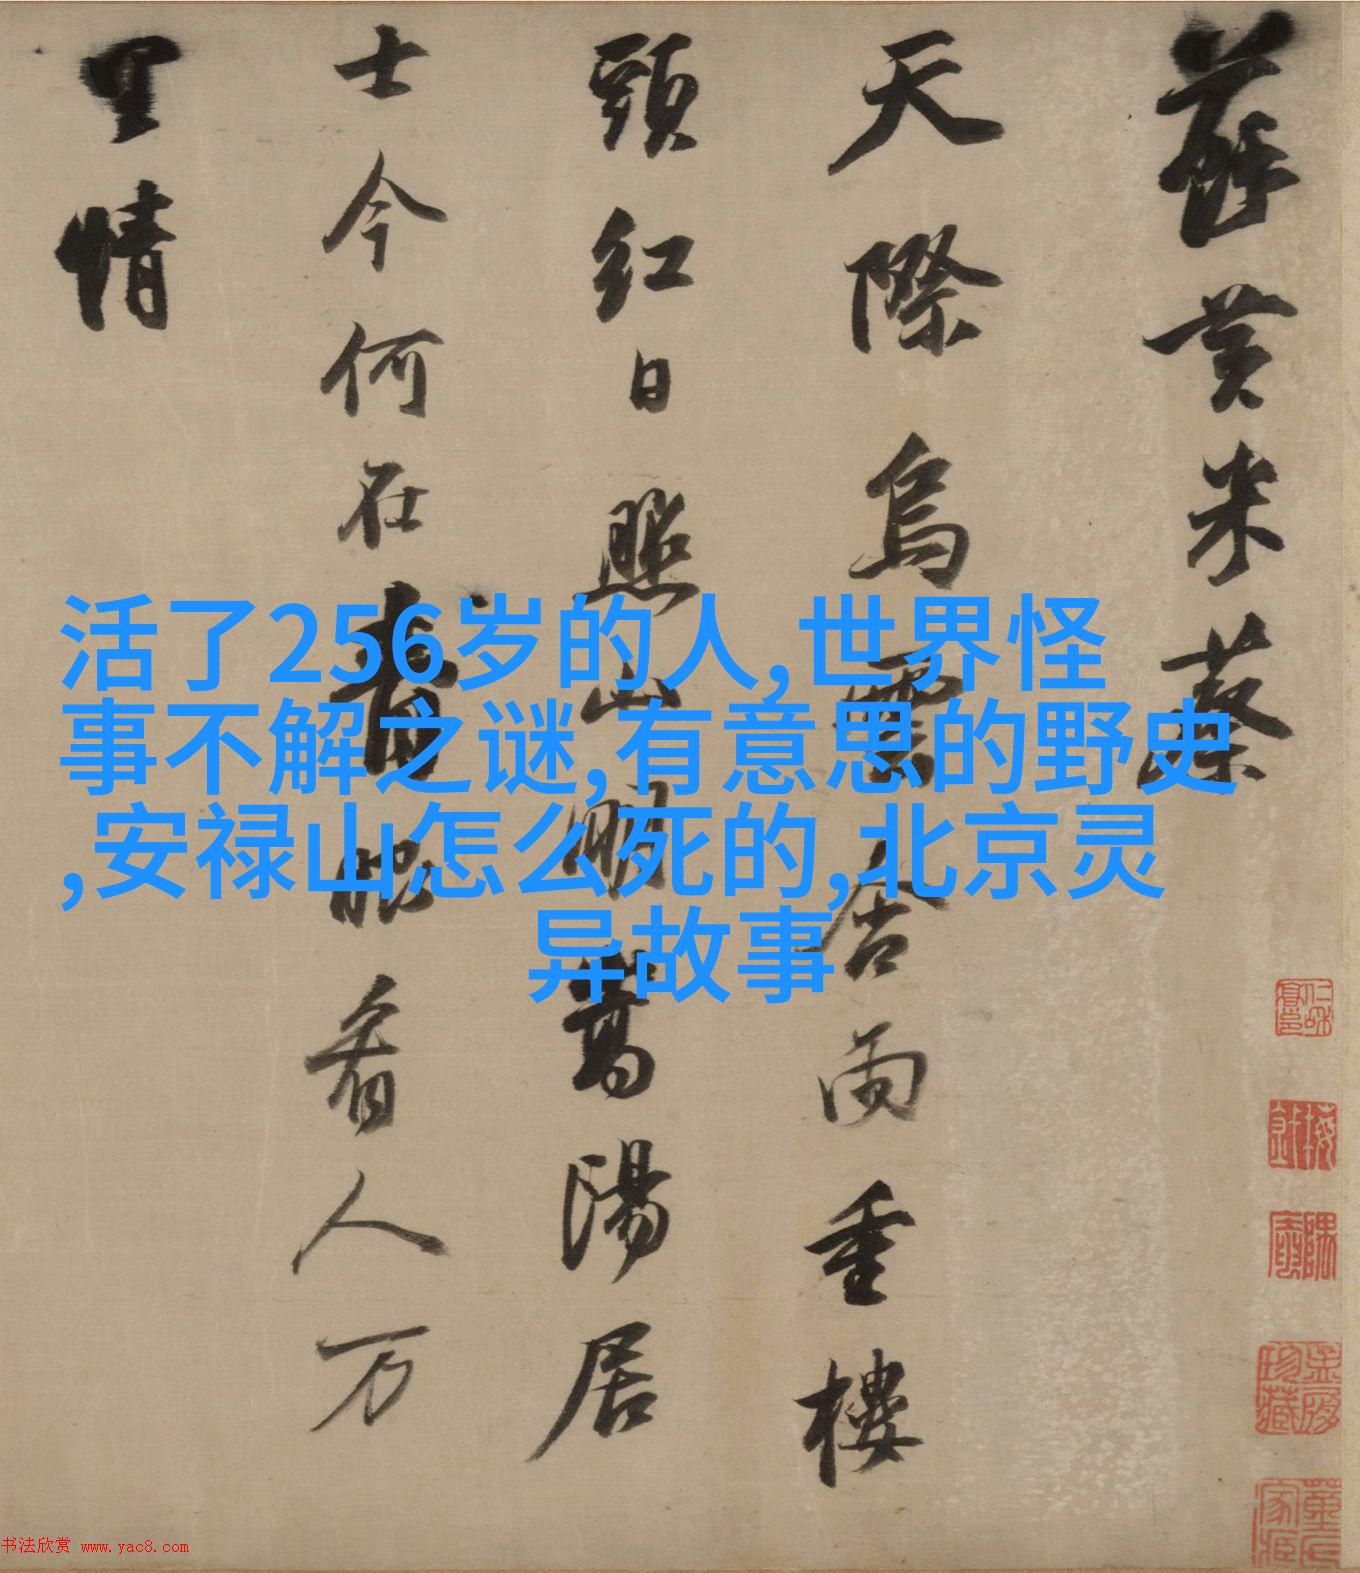 蘇黃米蔡
天際烏雲含雨重樓
頭紅日照山明嵩陽居
士今何在青眼看人万
里情
活了256岁的人,世界怪
事不解之谜,有意思的野史
,安禄山怎么死的,北京灵
异故事
书法欣赏 www.yac8.com